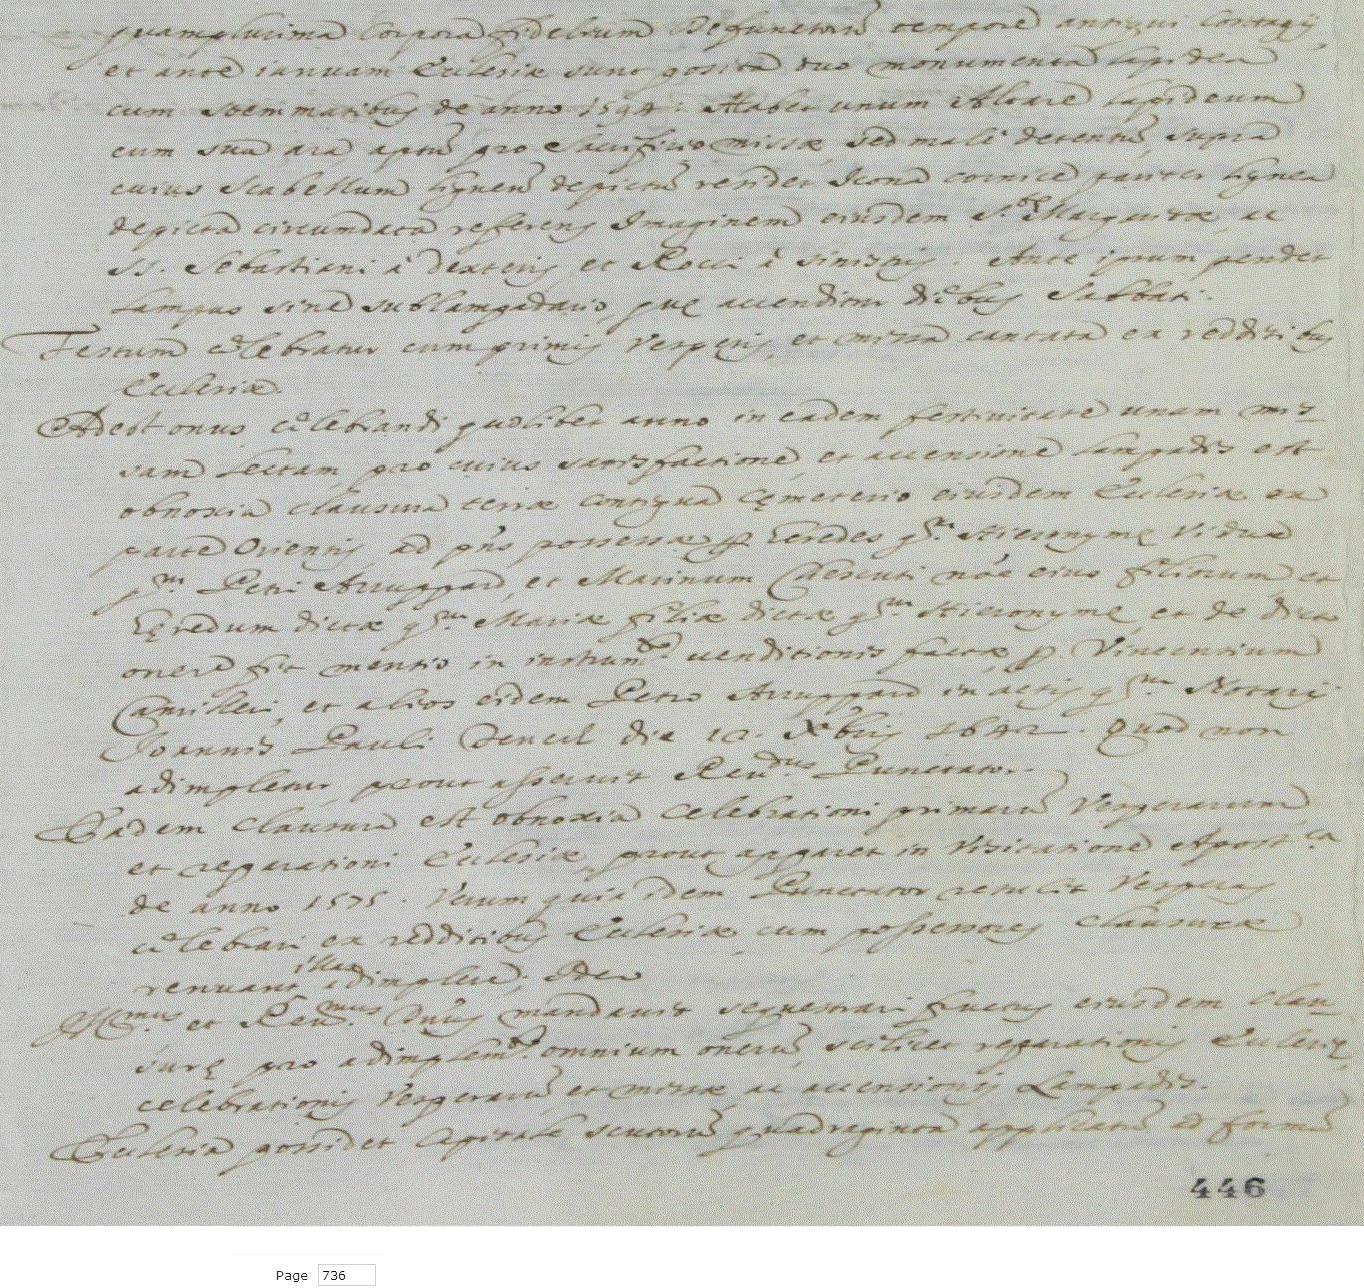 quamplurima Corpora fidelium Defunctorũ tempore antiqui Contagij,
et ante ianuam Ecclesiæ sunt posita duo monumenta lapidea
cum stemmatibus de anno 1594. Habet unum Altare lapideum
cum sua ara aptũ pro Sacrificio missæ, sed malè detentũ, supra
cuius Scabellum ligneũ depictũ residet Icona cornice pariter lignea
depicta circumdata referens Imaginem eiusdem S.tæ Margaritæ, ac
SS. Sebastiani à dexteris, et Rocci à sinistris. Ante ipsum pendet
lampas sine sublampadario, quę accenditur diebus Sabbati.
Festum celebratur cum primis Vesperis, et missa cantata ex redditibus
Ecclesiæ.
Adest onus celebrandi quolibet anno in eadem festivitate unam mis
sam lectam, pro cuius satisfactione, et accensione lampadis est
obnoxia clausura terræ contigua Cęmeterio eiusdem Ecclesiæ ex
parte Orientis, ad pñs possessæ p Eredes qm. Hieronymę Viduæ
qm. Petri Aruggard, et Marinum noẽ eius filiorum et
Eredum dictæ qm. Mariæ filiæ dictæ qm Hieronymę, et de dicto
onere fit mentio in instrumto. venditionis factæ p Vincentium
Camilleri, et alios eidem Petro Aruggard in actis qm. Notarij
Joannis Pauli die 12. Xbris 1642. Quod non
adimpletur, prout asseruit Reudus Punctator.
Eadem Clausura est obnoxia celebrationi primarũ Vesperarum
et reparationi Ecclesiæ, prout apparet in Visitatione Apostca
de anno 1575. Verum quia idem Punctator retulit Vesperas
celebrari ex redditibus Ecclesiæ cum possessores clausuræ
renuant illas adimplere; Ideo
Illmus et Reumus. Dñus mandavit sequestrari fructus eiusdem clau
surę pro adimplemto. omnium onerũ, scilicet reparationis Ecclesię,
celebrationis Vesperarũ et missæ ac accensionis Lampadis.
Ecclesia possidet Capitale scutorũ quadraginta applicatũ ad formã
446
Page 736